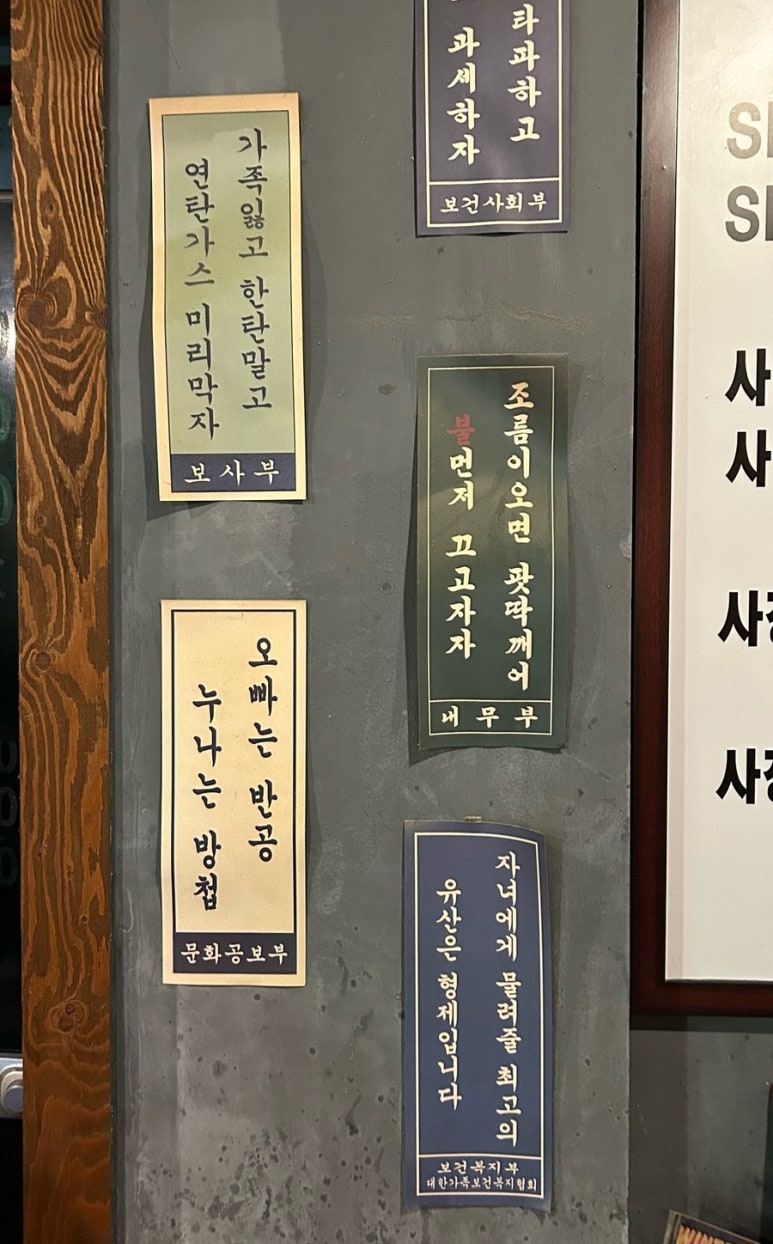 가족잃고 한탄말고
연탄가스 미리막자
보사부
오빠는 반공
누나는 방첩
문화공보부
타파하고
과세하자
보건사회부
조름이오면 팟딱깨어
불먼저 끄고자자
내무부
자녀에게 물려줄 최고의
유산은 형제입니다
보건복지부
대한가족보건복지협회
사
사
사
사